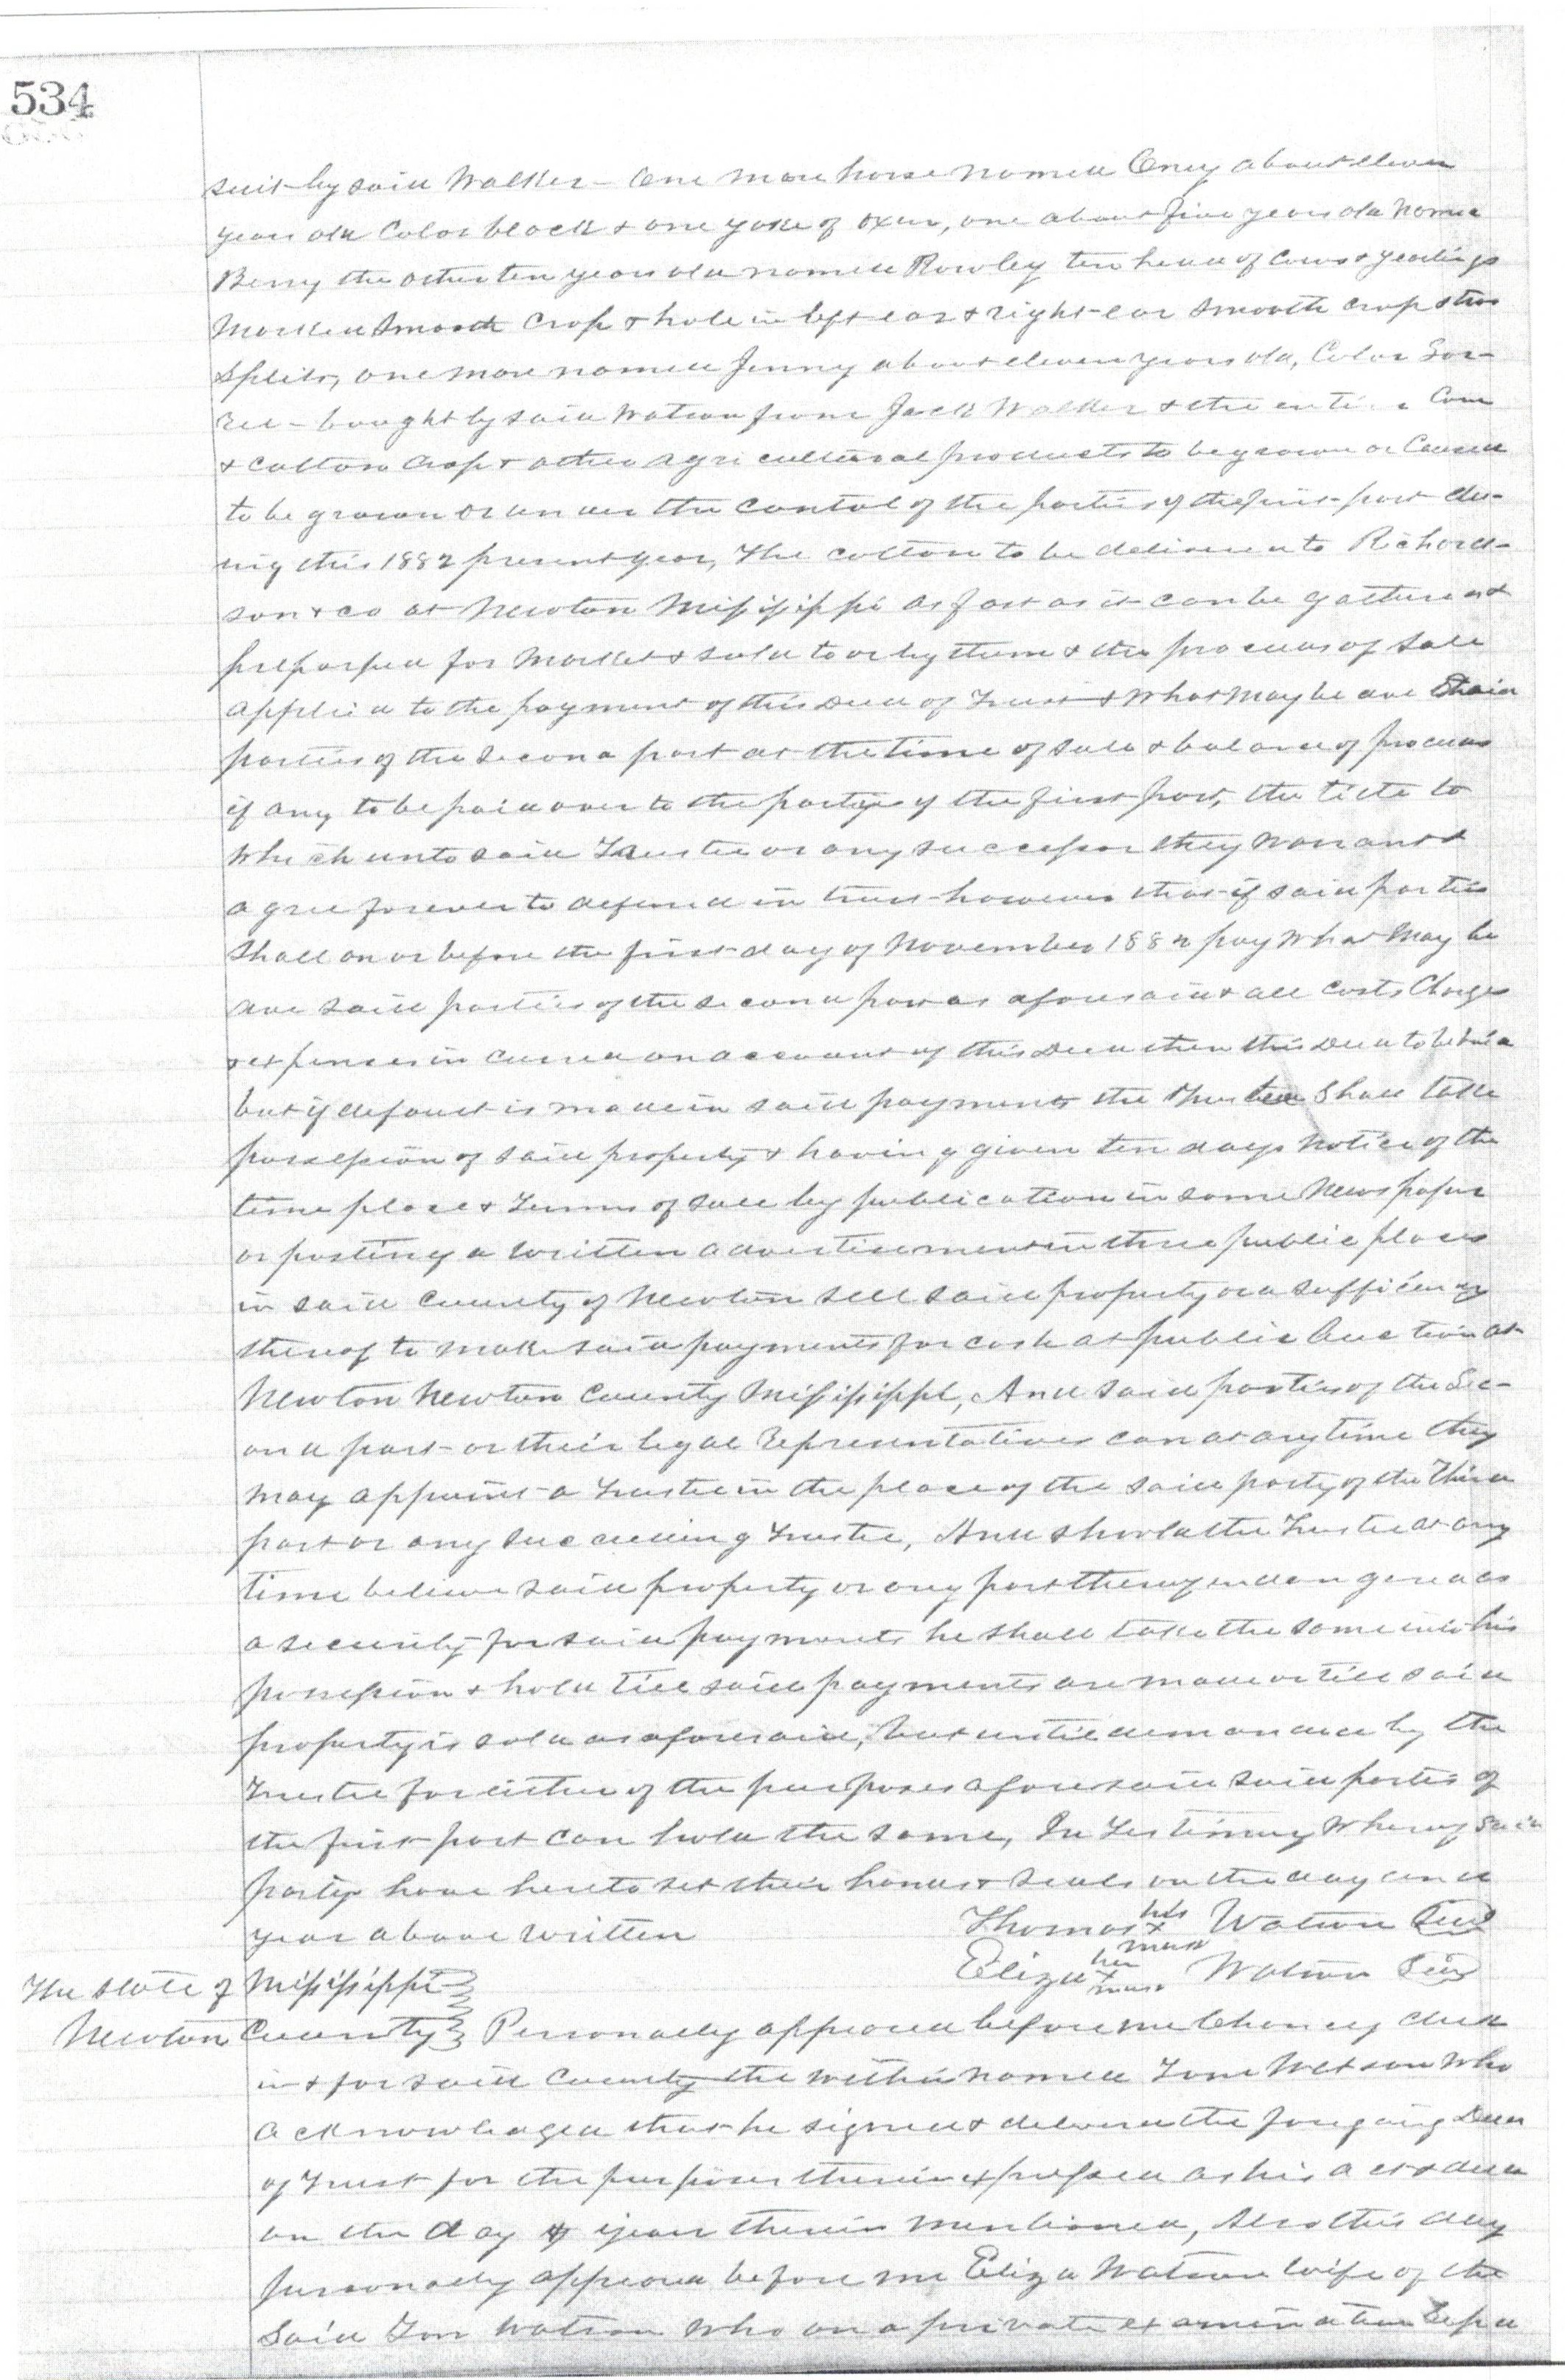 534
suit by said Walker - One mare horse named Oney about eleven
years old Color black & one yoke of oxen, one about five years old named
Berry the other ten years old named Rowley ten head of Cows & yearlings
Marked Smooth Crop & hole in left ear & right ear Smooth crop & two
Splits, one mare named Jenny about eleven years old, Color Sor-
rel - bought by said Watson from Jack Walker & the entire Corn
& Cotton Crop & other agricultural products to be grown or Caused
to be grown or under the Control of the parties of the first part du-
ring this 1882 present year, The cotton to be delivered to Richard-
son & co at Newton Mississippi as fast as it can be gathered &
prepared for Market & sold to or by them & the proceeds of Sale
applied to the payment of this Deed of Trust & What may be due said
parties of the Second part at the time of sale & balance of proceeds
if any to be paid over to the parties of the first part, the title to
Which unto said Trustee or any successor they warrant &
agree forever to defend in trust however that if said parties
Shall on or before the first day of November 1882 pay What May be
due said parties of the second part as aforesaid & all Costs Charges
& expenses incurred on account of this Deed then this Deed to be void
but if default is made in said payments the Trustee Shall take
possession of said property & having given ten days Notice of the
time place & Terms of sale by publication in some Newspaper
or posting a written advertisement in three public places
in said County of Newton sell said property or a sufficiency
thereof to make said payments for cash at public Auction at
Newton Newton County Mississippi, And said parties of the Sec-
ond part or their legal Representatives can at any time they
may appoint a Trustee in the place of the said party of the Third
part or any succeeding Trustee, And should the Trustee at any
time believe said property or any part thereof endangered as
a security for said payments he shall take the same into his
possession & hold till said payments are made or till said
property is sold as aforesaid, but until demanded by the
Trustee for either of the purposes aforesaid said parties of
the first part can hold the same, In Testimony Whereof said
parties have hereto set their hands & seals on the day and
year above written
Thomas his x mark Watson Seal
Eliza her x mark Watson Seal
The State of Mississippi
Newton County Personally appeared before me Chancy Clerk
in & for said County the within named Tom Watson Who
acknowledged that he signed & delivered the foregoing Deed
of Trust for the purposes therein expressed as his act & deed
on the day & year therein mentioned, Also this day
personally appeared before me Eliza Watson wife of the
Said Tom Watson Who on a private examination Sepa